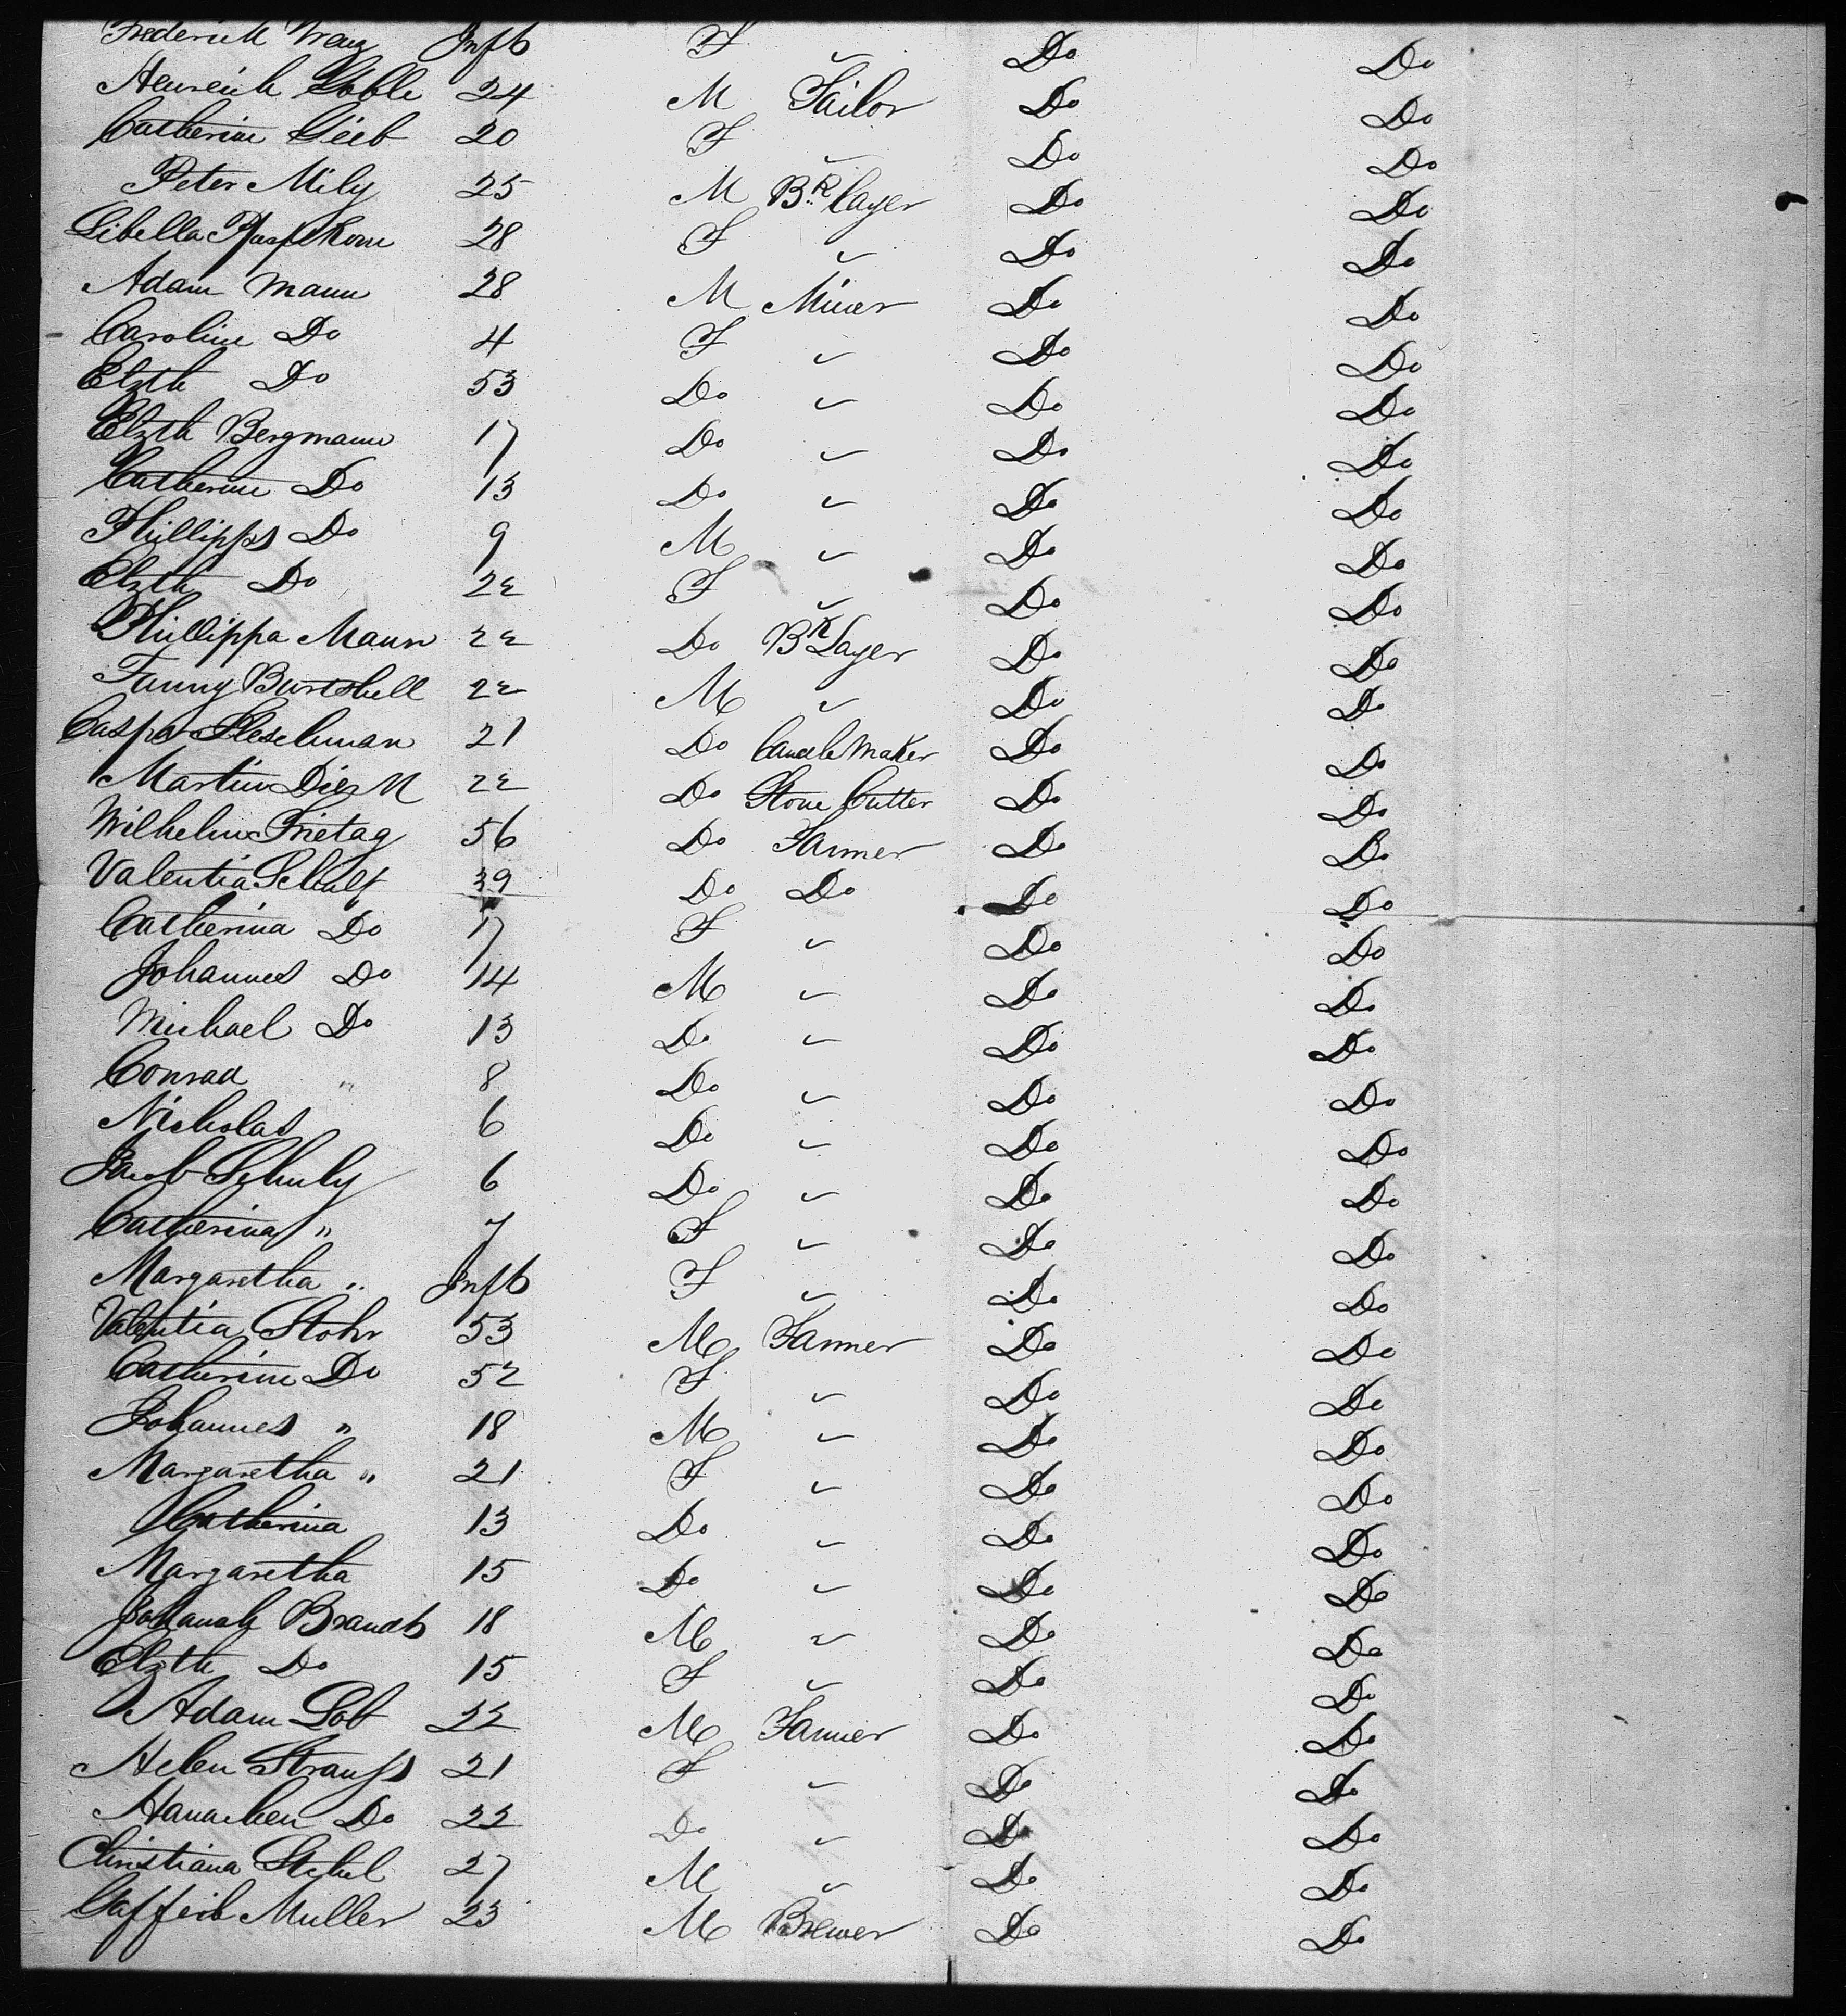 Frederick Inft F Do Do
Heinrich Gobble 24 M Tailor Do Do
Catherine Gieb 20 F " Do Do
Peter Mily 25 M Bk layer Do Do
Libella 28 F " Do Do
Adam Mann 28 M Miner Do Do
Caroline Do 4 F " Do Do
Elzth Do 53 Do " Do Do
Elzth Bergmann 17 Do " Do Do
Catherine Do 13 Do " Do Do
Phillipps Do 9 M " Do Do
Elzth Do 22 F " Do Do
Phillippa Mann 22 Do Bk Layer Do Do
Fanny Burtshell 22 M " Do Do
Caspar Fleschman 21 Do Candle Maker Do Do
Martin 22 Do Stone Cutter Do Do
Wilhelm Frietag 56 Do Farmer Do Do
Valentia Schulf 39 Do Do Do Do
Catherina Do 17 F " Do Do
Johannes Do 14 M " Do Do
Michael Do 13 Do " Do Do
Conrad " 8 Do " Do Do
Nicholas 6 Do " Do Do
Jacob Schuly 6 Do " Do Do
Catherina " 7 F " Do Do
Margaretha " Inft F " Do Do
Valentia Stohr 53 M Farmer Do Do
Catherine Do 52 F " Do Do
Johannes " 18 M " Do Do
Margaretha " 21 F " Do Do
Catherina 13 Do " Do Do
Margaretha 15 Do " Do Do
Johanah Brandt 18 M " Do Do
Elzth Do 15 F " Do Do
Adam Lob 22 M Farmer Do Do
Helen Strauss 21 F " Do Do
Hanachen Do 22 Do " Do Do
Christiana Stehel 27 M " Do Do
Gaffeib Muller 23 M Brewer Do Do